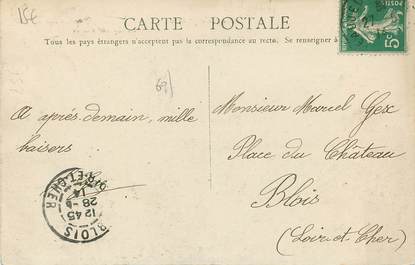 15€
CARTE POSTALE
Tous les pays étrangers n'acceptent pas la correspondance au recto. Se renseigner à
5c
POSTES
60/
A après-demain, mille
baisers
Monsieur Marcel Gex
Place du Château
Blois
(Loir et Cher)
BLOIS
12 45
28-
LOIR-ET-CHER